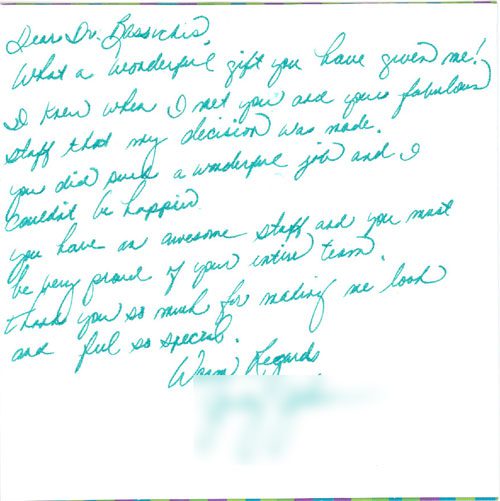 Dear Dr. Bassichis,
What a wonderful gift you have given me!
I knew when I met you and your fabulous
staff that my decision was made.
You did such a wonderful job and I
couldn't be happier
you have an awesome staff and you must
be very proud of your entire team.
thank you so much for making me look
and feel so special.
Warm Regards